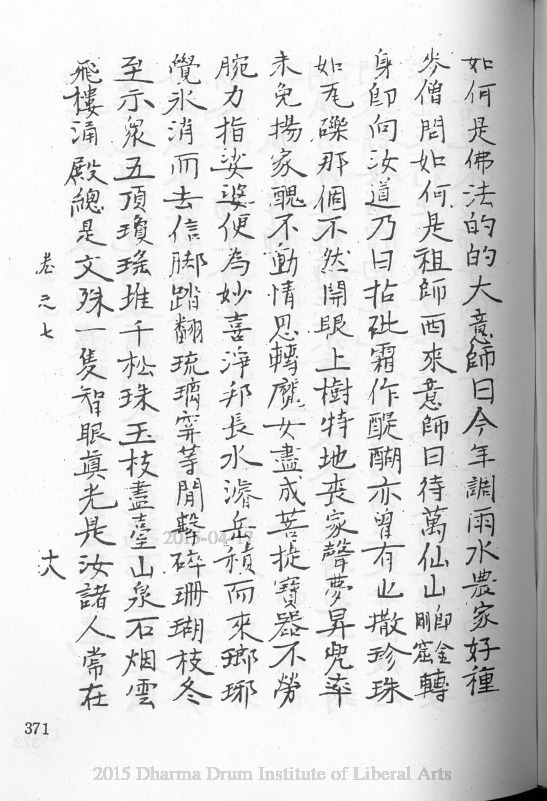 如何是佛法的的大意師曰今年調雨水農家好種
㘽僧問如何是祖師西來意師曰待萬仙山即金剛窟轉
身即向汝道乃曰拈砒霜作醍醐亦曾有也撒珍珠
如瓦礫那個不然開眼上樹特地喪家聲夢昇兜率
未免揚家醜不動情思轉魔女盡成菩提寶器不勞
腕力指娑婆便為妙喜淨邦長水濬岳積而來瑯琊
覺氷消而去信脚踏翻琉璃穽等閒擊碎珊瑚枝冬
至示衆五頂瓊瑤堆千松珠玉枝盡臺山泉石烟雲
飛樓涌殿總是文殊一隻智眼眞光是汝諸人常在
卷之七
371
2015-04-17
2015 Dharma Drum Institute of Liberal Arts